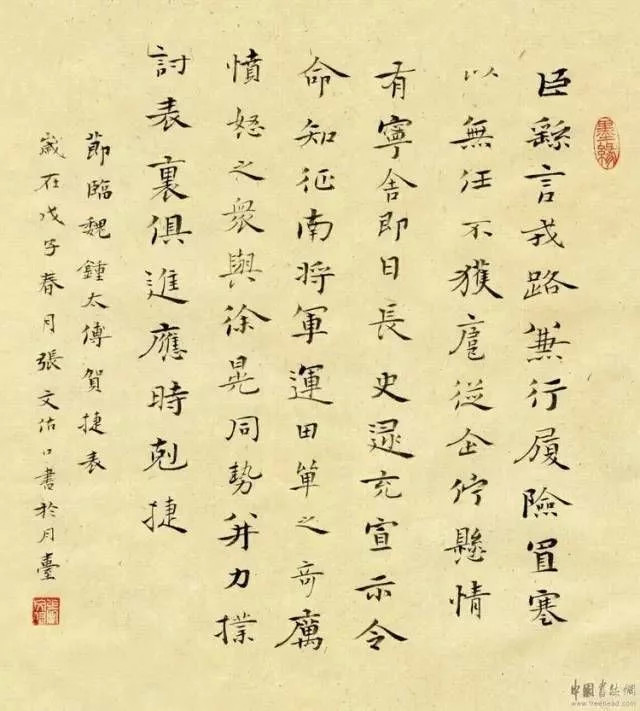 墨緣
臣繇言戎路兼行履險冒寒
以無任不獲扈從企佇懸情
有寧舍即日長史逯充宣示令
命知征南將軍運田單之奇厲
憤怒之衆與徐晃同勢并力撲
討表裏俱進應時剋捷
節臨魏鍾太傅賀捷表
歲在戊子春月張文佑書於月臺
中國書法網
www.freehead.com